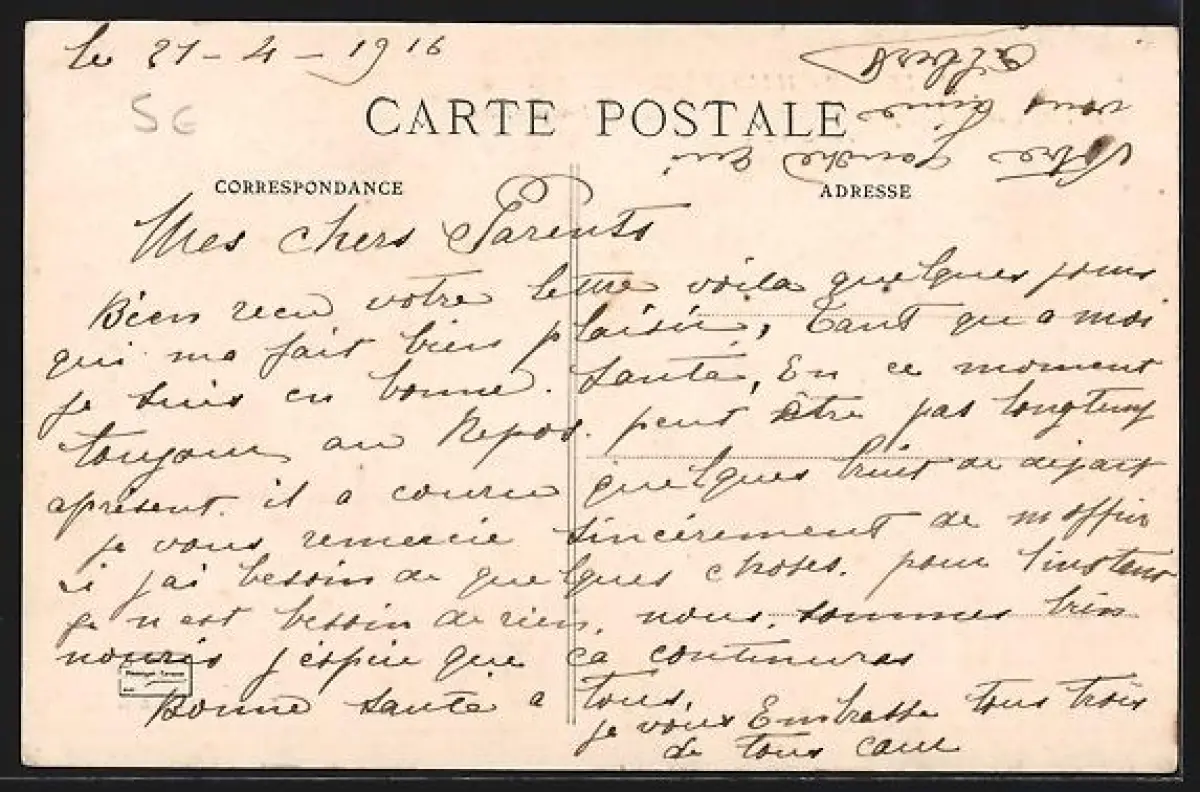 le 21-4-1916
SG
CARTE POSTALE
CORRESPONDANCE
ADRESSE
Mes chers Parents
Bien recu votre lettre voila quelques jours
qui ma fait bien plaisir, tant qu a moi
je suis en bonne. santé, En ce moment
toujours au Repos. peut être pas longtemp
aprésent. il a courru quelques bruit de départ
je vous remercie sincèrement de m offrir
si j'ai besoin de quelques choses. pour l'instant
je n est besoin de rien, nous. sommes bien
nouris j éspère que ca continueras
Bonne santé a tous,
je vous Embrasse tous trois
de tous cœur
Votre gendre qui
vous aime
Albert